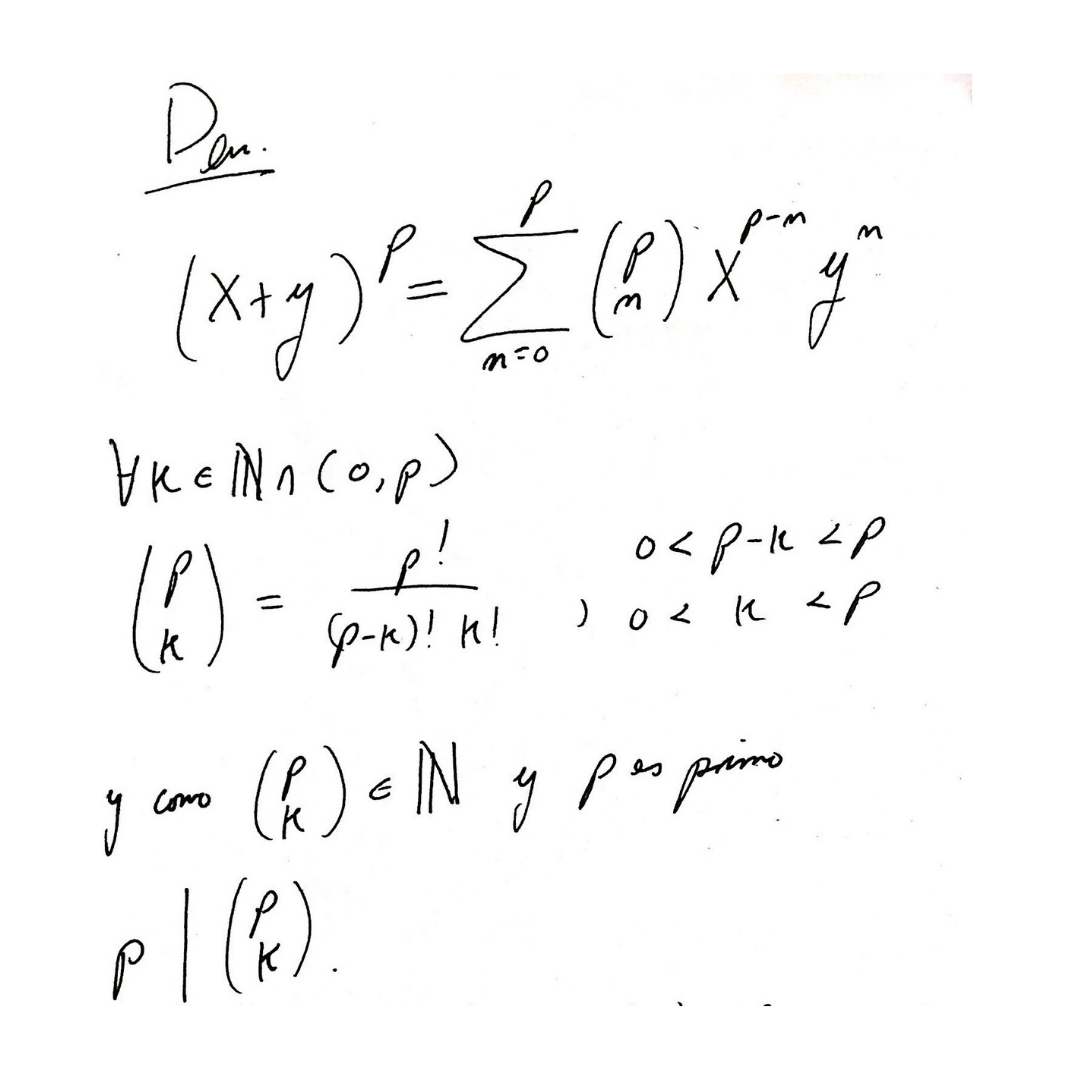 Dem.
(x+y)^p = \sum_{n=0}^{p} \binom{p}{n} x^{p-n} y^n
∀k ∈ ℕ ∩ (0,p)
\binom{p}{k} = \frac{p!}{(p-k)! k!} , 0 < p-k < p
0 < k < p
y como \binom{p}{k} ∈ ℕ y p es primo
p | \binom{p}{k}.